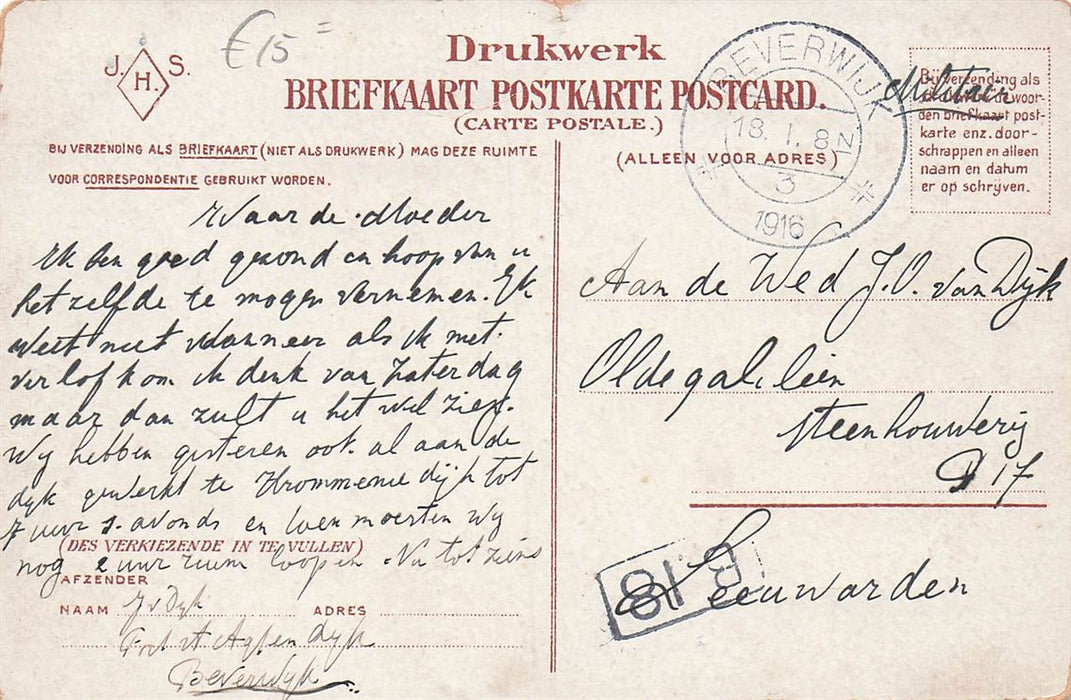 €15 =
J. H. S.
Drukwerk
BRIEFKAART POSTKARTE POSTCARD.
(CARTE POSTALE.)
BIJ VERZENDING ALS BRIEFKAART (NIET ALS DRUKWERK) MAG DEZE RUIMTE
VOOR CORRESPONDENTIE GEBRUIKT WORDEN.
(ALLEEN VOOR ADRES)
BEVERWIJK
18. 1. 8 N
3
1916
Militair
Bij verzending als
woor-
den briefkaart post-
karte enz. door-
schrappen en alleen
naam en datum
er op schrijven.
Waarde Moeder
Ik ben goed gezond en hoop van u
het zelfde te mogen vernemen. Ik
weet niet wanneer als ik met
verlof kom ik denk van Zaterdag
maar dan zult u het wel zien.
Wij hebben gisteren ook al aan de
dyk gewerkt te Krommenie dijk tot
7 uur s. avonds en toen moesten wij
nog 2 uur ruim loopen. Nu tot ziens
(DES VERKIEZENDE IN TE VULLEN)
AFZENDER
NAAM J v Dyk ADRES
Fort St Aagtendijk
Beverwyk
Aan de Wed J. O. van Dijk
Oldegalileën
Steenhouwerij
D 17
Leeuwarden
B 18